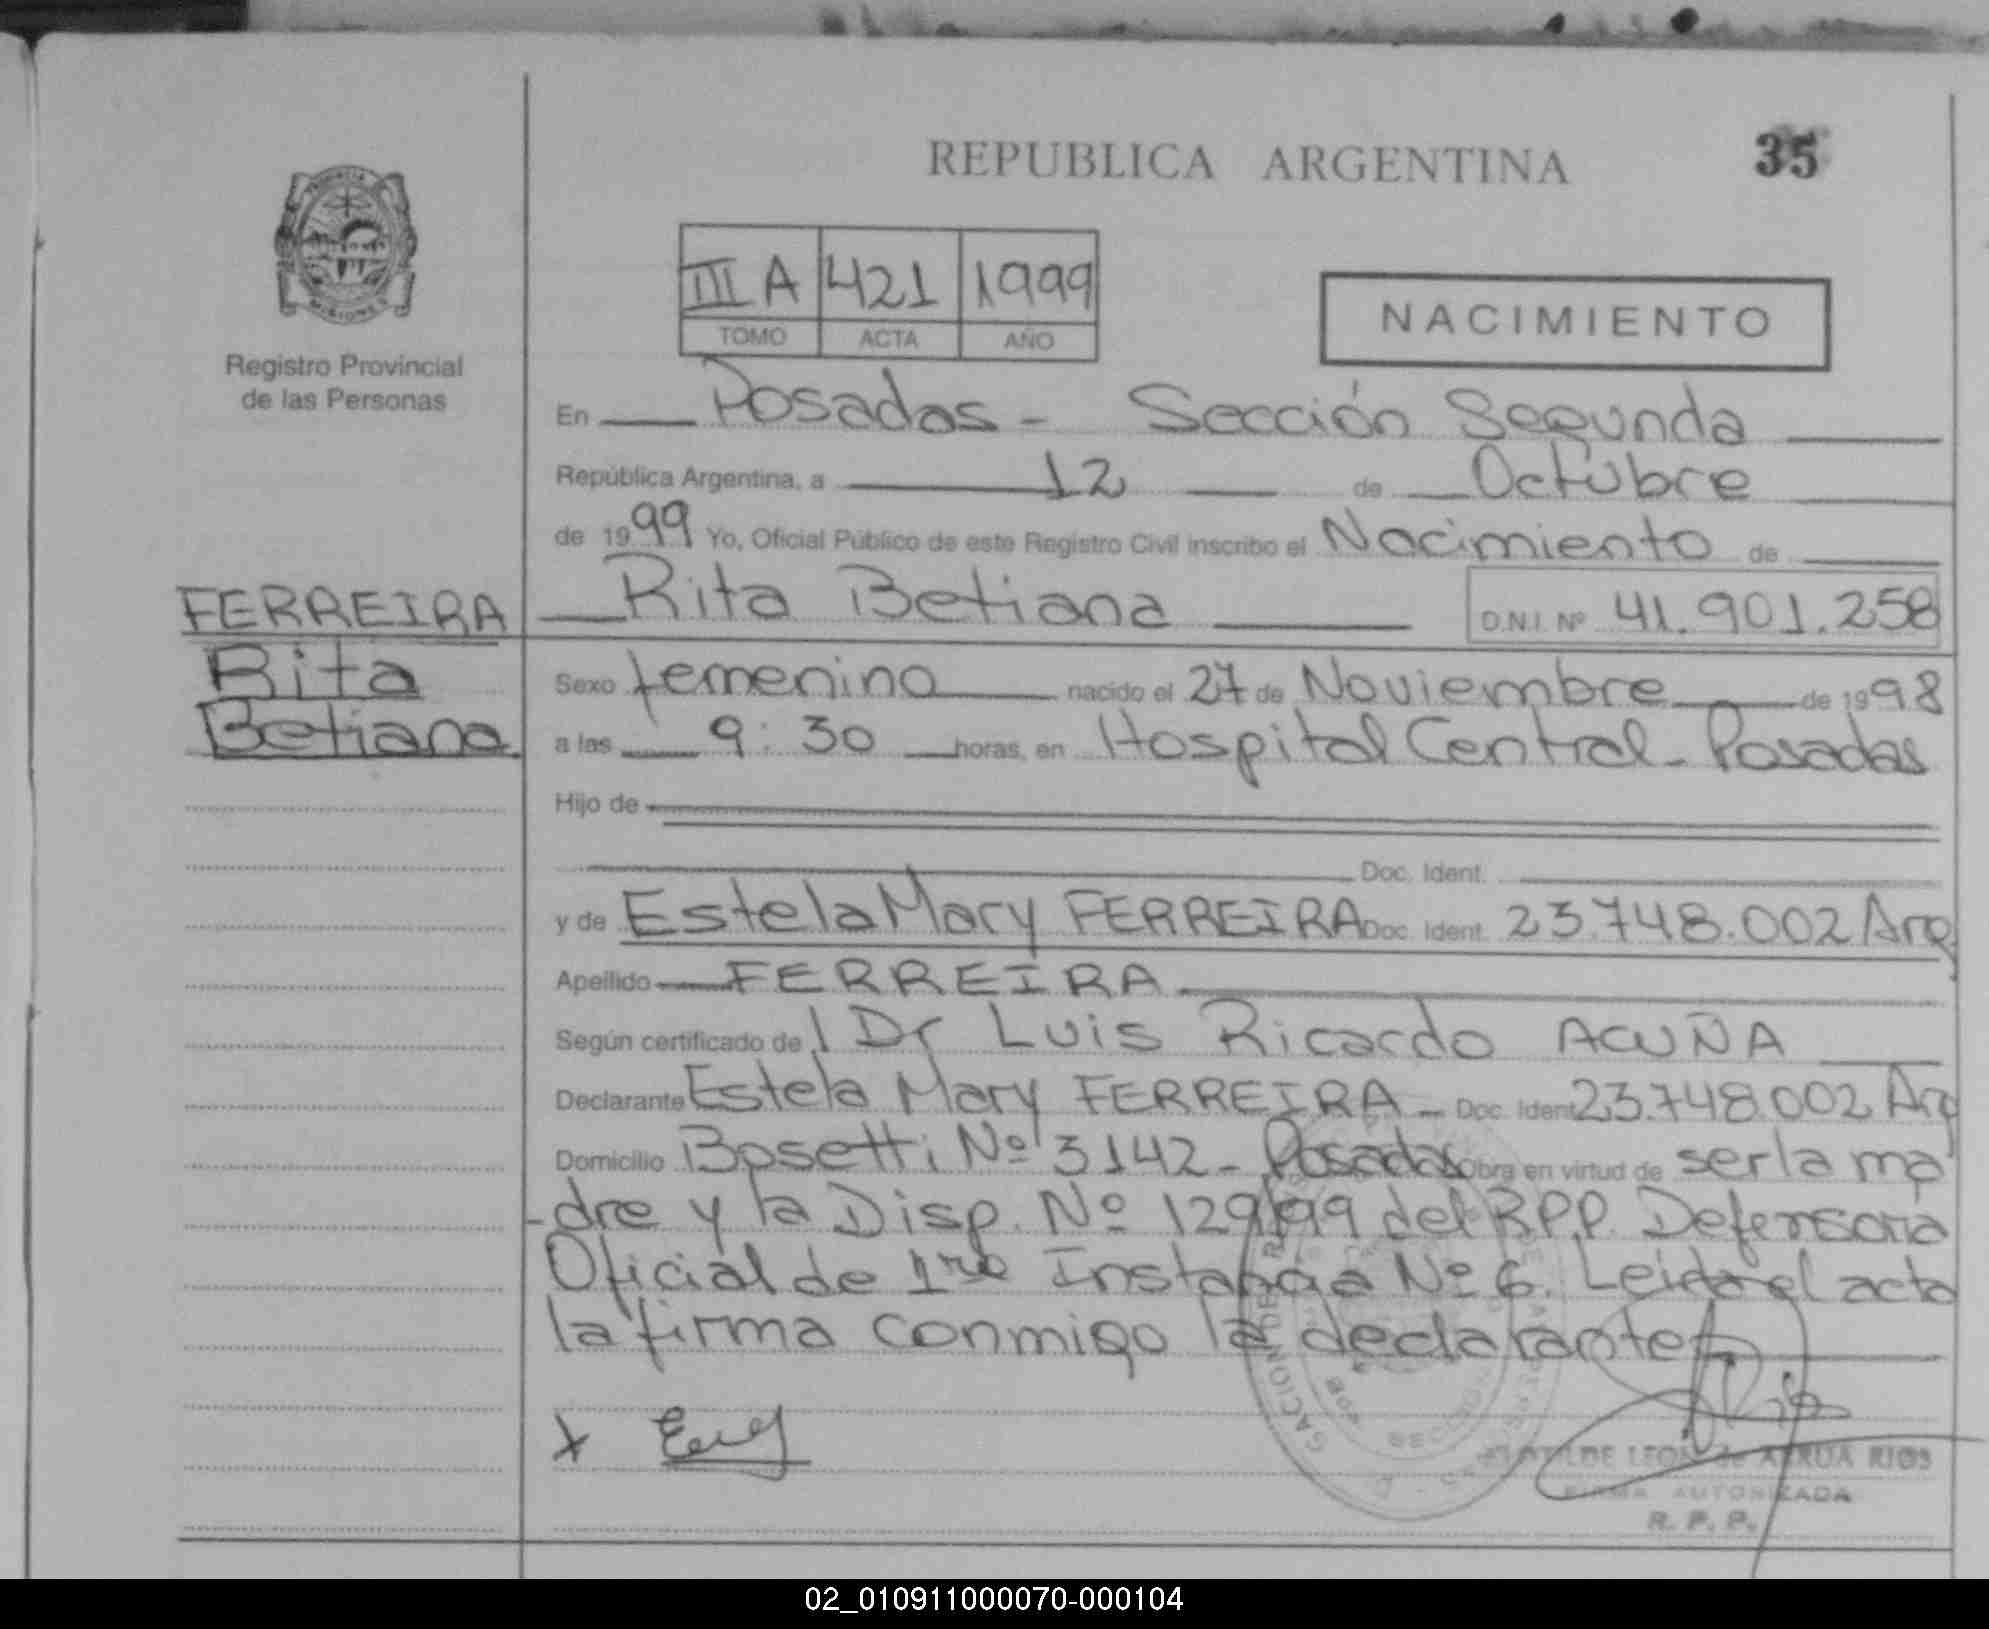 REPUBLICA ARGENTINA
35
PROVINCIA
MISIONES
Registro Provincial
de las Personas
III A 421 1999
TOMO ACTA AÑO
NACIMIENTO
En Posadas - Sección Segunda
República Argentina, a 12 de Octubre
de 1999 Yo, Oficial Público de este Registro Civil inscribo el Nacimiento de
FERREIRA
Rita
Betiana
Rita Betiana D.N.I. Nº 41.901.258
Sexo femenino nacido el 27 de Noviembre de 1998
a las 9:30 horas, en Hospital Central - Posadas
Hijo de
Doc. Ident.
y de Estela Mary FERREIRA Doc. Ident. 23.748.002 Arg
Apellido FERREIRA
Según certificado de l Dr Luis Ricardo ACUÑA
Declarante Estela Mary FERREIRA - Doc. Ident 23.748.002 Arg
Domicilio Bosetti Nº 3142 - Posadas Obra en virtud de ser la ma
-dre y la Disp. Nº 129/99 del R.P.P. Defensoria
Oficial de 1ra Instancia Nº 6. Leida el acta
la firma conmigo la declarante
x
LEON de RIOS
FIRMA AUTORIZADA
R. P. P.
02_010911000070-000104